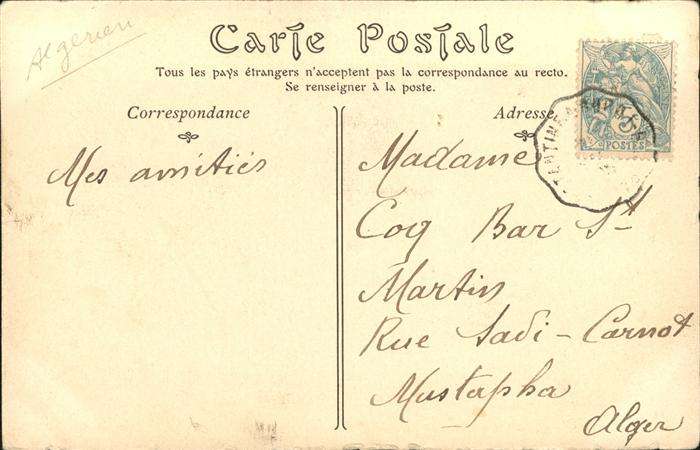 Algerien
Carte Postale
Tous les pays étrangers n'acceptent pas la correspondance au recto.
Se renseigner à la poste.
Correspondance
Mes amitiés
Adresse
5
POSTES
Madame
Coq Bar St
Martin
Rue Sadi-Carnot
Mustapha
Alger